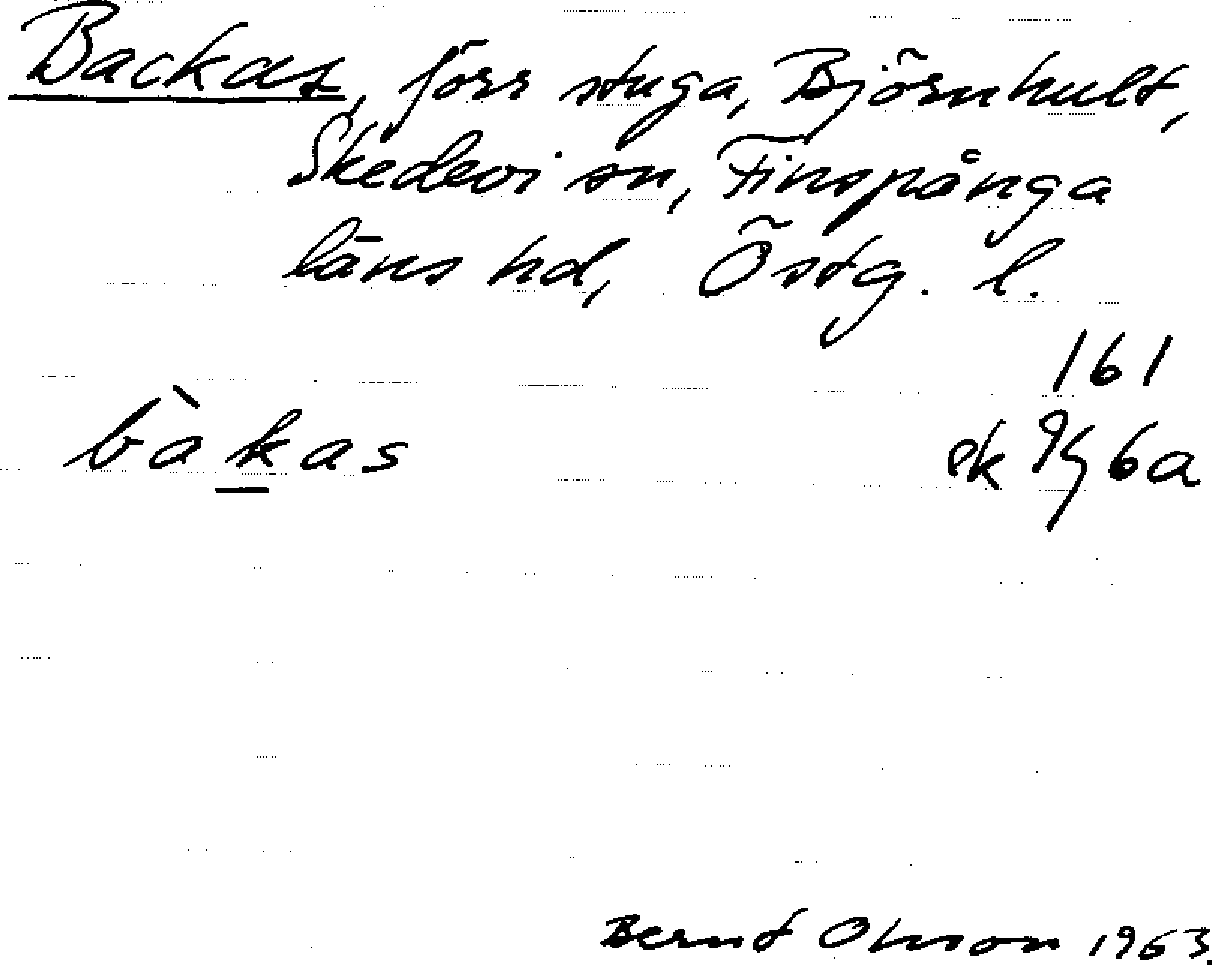 Backas, förr stuga, Björnhult,
Skedevi sn, Finspånga
läns hd, Östg. l.
161
bàkas ek 9h6a
Bernt Olsson 1963.